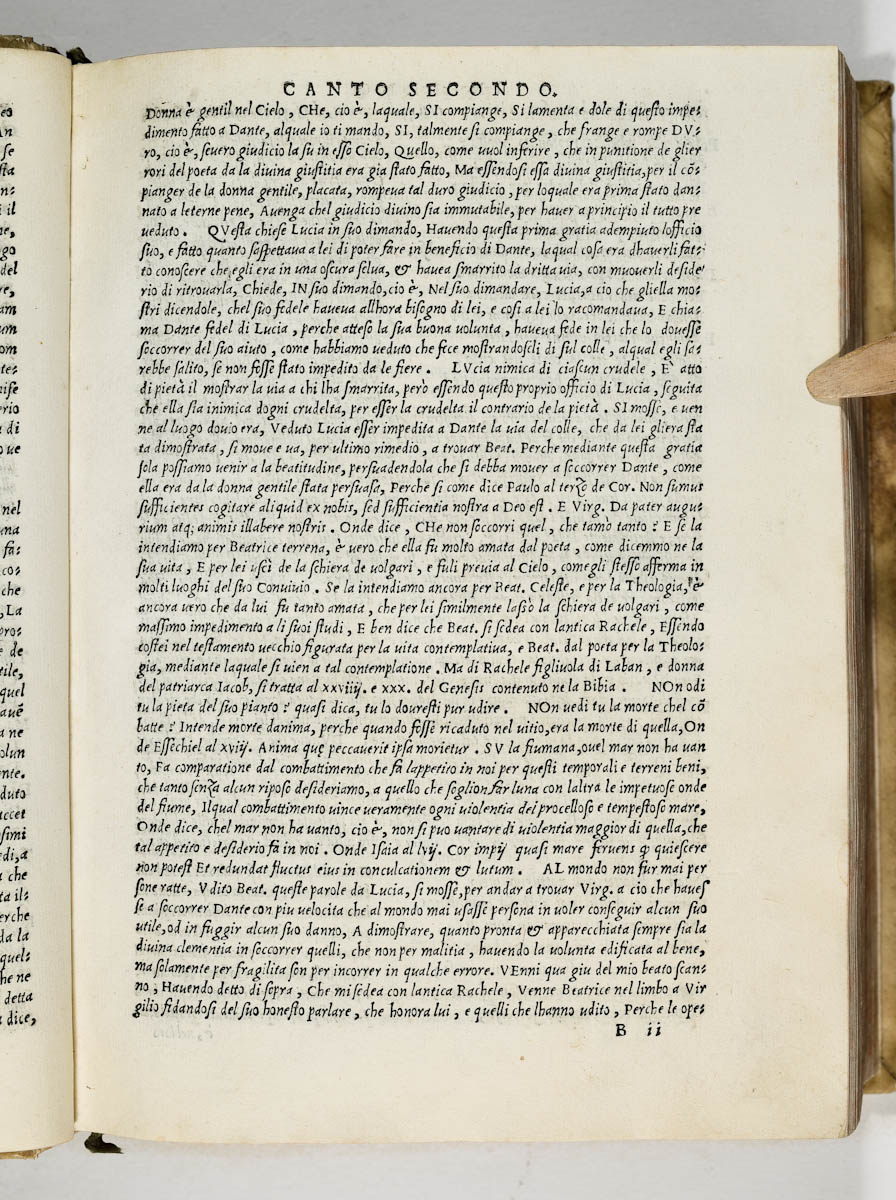 CANTO SECONDO.
Donna è gentil nel Cielo, CHe, cio è, laquale, SI compiange, Si lamenta e dole di questo impe-
dimento fatto a Dante, alquale io ti mando, SI, talmente si compiange, che frange e rompe DV-
ro, cio è, seuero giudicio la su in esso Cielo, Quello, come uuol inferire, che in punitione de glier
rori del poeta da la diuina giustitia era gia stato fatto, Ma essendosi essa diuina giustitia, per il cõ-
pianger de la donna gentile, placata, rompeua tal duro giudicio, per loquale era prima stato dan-
nato a leterne pene, Auenga chel giudicio diuino sia immutabile, per hauer a principio il tutto pre
ueduto. QVesta chiese Lucia in suo dimando, Hauendo questa prima gratia adempiuto lofficio
suo, e fatto quanto saspettaua a lei di poter fare in beneficio di Dante, laqual cosa era dhauerli fat-
to conoscere che egli era in una oscura selua, & hauea smarrito la dritta uia, con muouerli deside
rio di ritrouarla, Chiede, IN suo dimando, cio è, Nel suo dimandare, Lucia, a cio che gliella mo-
stri dicendole, chel suo fedele haueua allhora bisogno di lei, e cosi a lei lo racomandaua, E chia-
ma Dante fedel di Lucia, perche atteso la sua buona uolunta, haueua fede in lei che lo douesse
soccorrer del suo aiuto, come habbiamo ueduto che fice mostrandoseli di sul colle, alqual egli sa-
rebbe salito, se non fosse stato impedito da le fiere. LVcia nimica di ciascun crudele, E atto
di pietà il mostrar la uia a chi lha smarrita, però essendo questo proprio officio di Lucia, seguita
che ella sia inimica dogni crudelta, per esser la crudelta il contrario de la pietà. SI mosse, e uen
ne al luogo douio era, Veduto Lucia esser impedita a Dante la uia del colle, che da lei gliera sta
ta dimostrata, si moue e ua, per ultimo rimedio, a trouar Beat. Perche mediante questa gratia
sola possiamo uenir a la beatitudine, persuadendola che si debba mouer a soccorrer Dante, come
ella era da la donna gentile stata persuasa, Perche si come dice Paulo al terzo de Cor. Non sumus
sufficientes cogitare aliquid ex nobis, sed sufficientia nostra a Deo est. E Virg. Da pater augu-
rium atq; animis illabere nostris. Onde dice, CHe non soccorri quel, che tamò tanto? E se la
intendiamo per Beatrice terrena, è uero che ella fu molto amata dal poeta, come dicemmo ne la
sua uita, E per lei uscì de la schiera de uolgari, e fuli preuia al Cielo, comegli stesso afferma in
molti luoghi del suo Conuiuio. Se la intendiamo ancora per Beat. Celeste, e per la Theologia, è
ancora uero che da lui fu tanto amata, che per lei similmente lassò la schiera de uolgari, come
massimo impedimento a li suoi studi, E ben dice che Beat. si sedea con lantica Rachele, Essendo
costei nel testamento uecchio figurata per la uita contemplatiua, e Beat. dal poeta per la Theolo-
gia, mediante laquale si uien a tal contemplatione. Ma di Rachele figliuola di Laban, e donna
del patriarca Iacob, si tratta al xxviiij. e xxx. del Genesis contenuto ne la Bibia. NOn odi
tu la pieta del suo pianto? quasi dica, tu lo douresti pur udire. NOn uedi tu la morte chel cõ
batte? Intende morte danima, perche quando fosse ricaduto nel uitio, era la morte di quella, On
de Essechiel al xviij. Anima quę peccauerit ipsa morietur. SV la fiumana, oue l mar non ha uan
to, Fa comparatione dal combattimento che fa lappetito in noi per questi temporali e terreni beni,
che tanto senza alcun riposo desideriamo, a quello che soglion far luna con laltra le impetuose onde
del fiume, Ilqual combattimento uince ueramente ogni uiolentia del procelloso e tempestoso mare,
Onde dice, chel mar non ha uanto, cio è, non si puo uantare di uiolentia maggior di quella, che
tal appetito e desiderio fa in noi. Onde Isaia al lvij. Cor impij quasi mare feruens qđ quiescere
non potest Et redundat fluctus eius in conculcationem & lutum. AL mondo non fur mai per
sone ratte, Vdito Beat. queste parole da Lucia, si mosse, per andar a trouar Virg. a cio che haues
se a soccorrer Dante con piu uelocita che al mondo mai usasse persona in uoler conseguir alcun suo
utile, od in fuggir alcun suo danno, A dimostrare, quanto pronta & apparecchiata sempre sia la
diuina clementia in soccorrer quelli, che non per malitia, hauendo la uolunta edificata al bene,
ma solamente per fragilita son per incorrer in qualche errore. VEnni qua giu del mio beato scan-
no, Hauendo detto di sopra, Che mi sedea con lantica Rachele, Venne Beatrice nel limbo a Vir
gilio fidandosi del suo honesto parlare, che honora lui, e quelli che lhanno udito, Perche le ope-
B ii